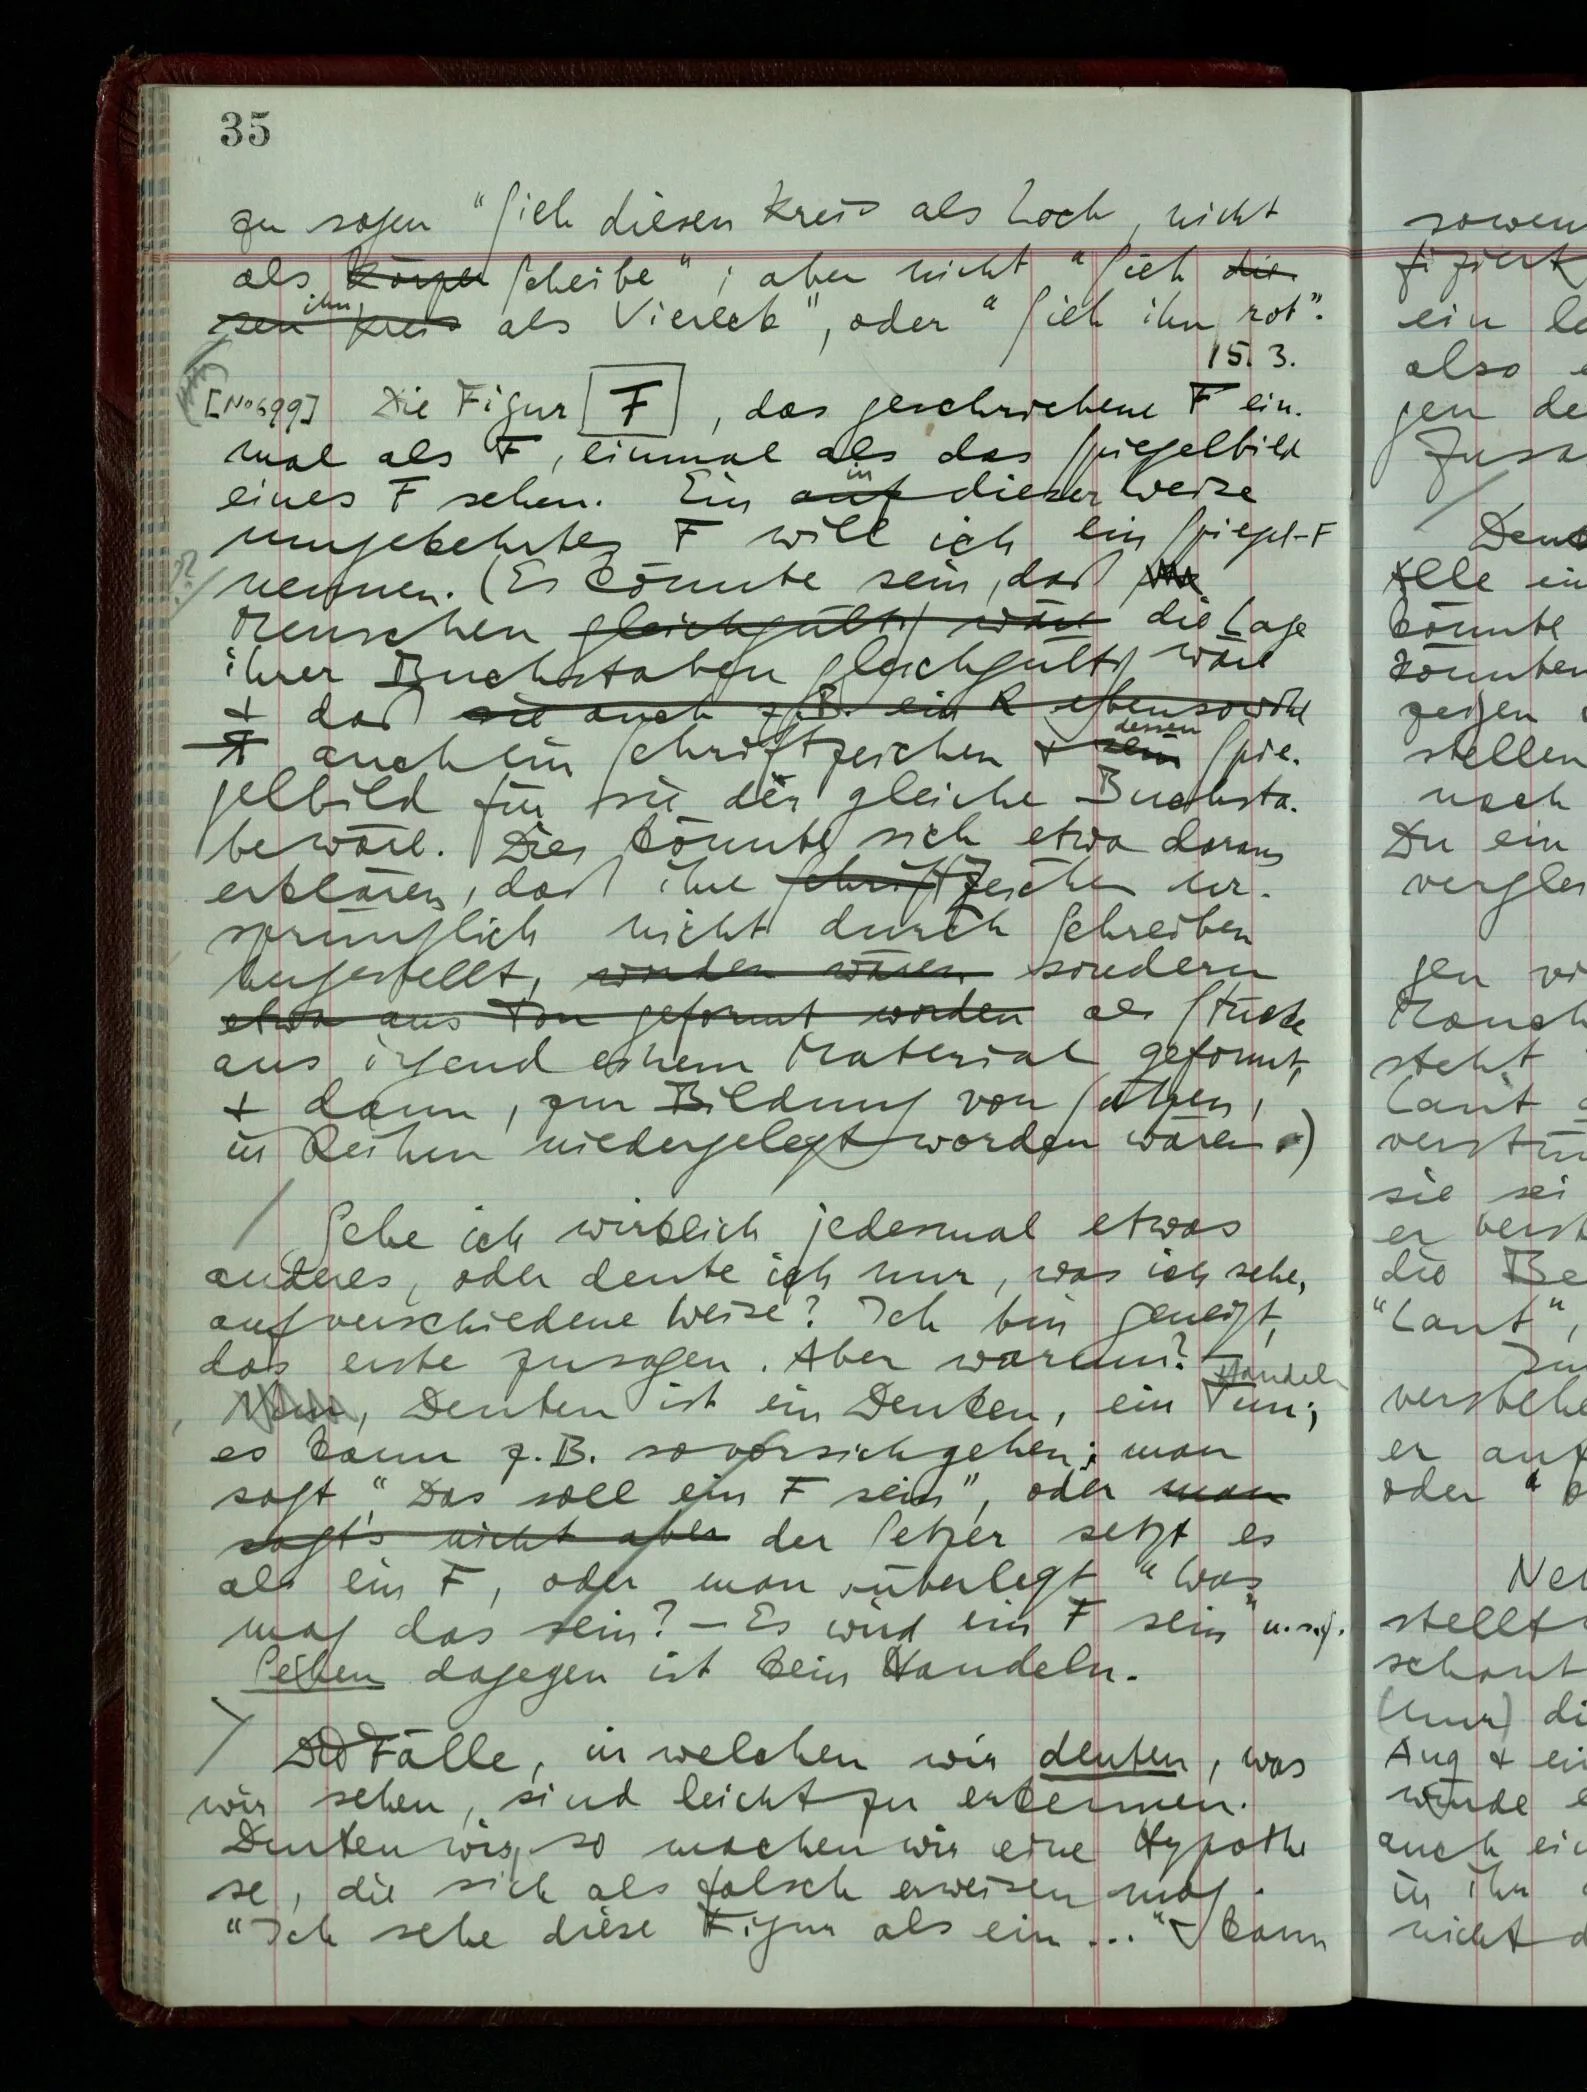 35
zu sagen "Sieh diesen Kreis als Loch, nicht
als Körper Scheibe"; aber nicht "Sieh die-
sen Kreis ihn als Viereck", oder "Sieh ihn rot".
15. 3.
[No 699] Die Figur F, das geschriebene F ein-
mal als F, einmal als das Spiegelbild
eines F sehen. Ein auf in dieser Weise
umgekehrtes F will ich ein Spiegel-F
nennen. (Es könnte sein, daß
Menschen gleichgültig wäre die Lage
ihrer Buchstaben gleichgültig wäre
+ daß sie auch z.B. ein R ebensowohl
Я auch ein Schriftzeichen + sein dessen Spie-
gelbild für sie der gleiche Buchsta-
be wäre. Dies könnte sich etwa daraus
erklären, daß ihre Schrift Zeichen ur-
sprünglich nicht durch Schreiben
hergestellt, worden wären sondern
etwa aus Ton geformt worden als Stücke
aus irgend einem Material geformt,
+ dann, zur Bildung von Sätzen,
in Reihen niedergelegt worden wären.)
/ Sehe ich wirklich jedesmal etwas
anderes, oder deute ich nur, was ich sehe,
auf verschiedene Weise? Ich bin geneigt,
das erste zu sagen. Aber warum? –
Nun, Deuten ist ein Denken, ein Tun; Handeln
es kann z.B. so vorsichgehen; man
sagt "Das soll ein F sein", oder man
sagt's nicht aber der Setzer setzt es
als ein F, oder man überlegt "Was
mag das sein? – Es wird ein F sein" u.s.f.
Sehen dagegen ist kein Handeln.
Die Fälle, in welchen wir deuten, was
wir sehen, sind leicht zu erkennen.
Deuten wir, so machen wir eine Hypothe
se, die sich als falsch erweisen mag.
"Ich sehe diese Figur als ein ..." kann
sowen
fiziert
ein
also
gen de
/ Den
Alle ei
könnte
könnten
zeigen
stellen
noch
Du ein
verglei
gen
Manch
steht
Laut
verstün
sie sei
er verst
die Be
"Laut",
verstehe
er auf
oder "
stellt
schaut
(nur) di
Aug + ei
würde e
auch ei
in ihr
nicht d